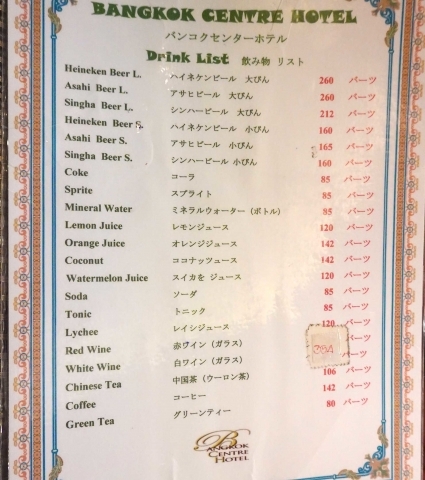 BANGKOK CENTRE HOTEL
バンコクセンターホテル
Drink List 飲み物 リスト
Heineken Beer L. ハイネケンビール 大びん 260 バーツ
Asahi Beer L. アサヒビール 大びん 260 バーツ
Singha Beer L. シンハービール 大びん 212 バーツ
Heineken Beer S. ハイネケンビール 小びん 160 バーツ
Asahi Beer S. アサヒビール 小びん 165 バーツ
Singha Beer S. シンハービール 小びん 160 バーツ
Coke コーラ 85 バーツ
Sprite スプライト 85 バーツ
Mineral Water ミネラルウォーター（ボトル） 85 バーツ
Lemon Juice レモンジュース 120 バーツ
Orange Juice オレンジジュース 142 バーツ
Coconut ココナッツジュース 142 バーツ
Watermelon Juice スイカを ジュース 142 バーツ
Soda ソーダ 85 バーツ
Tonic トニック 85 バーツ
Lychee レイシジュース 120 バーツ
Red Wine 赤ワイン（ガラス） バーツ
White Wine 白ワイン（ガラス） バーツ
Chinese Tea 中国茶（ウーロン茶） 106 バーツ
Coffee コーヒー 142 バーツ
Green Tea グリーンティー 80 バーツ
BANGKOK
CENTRE
HOTEL